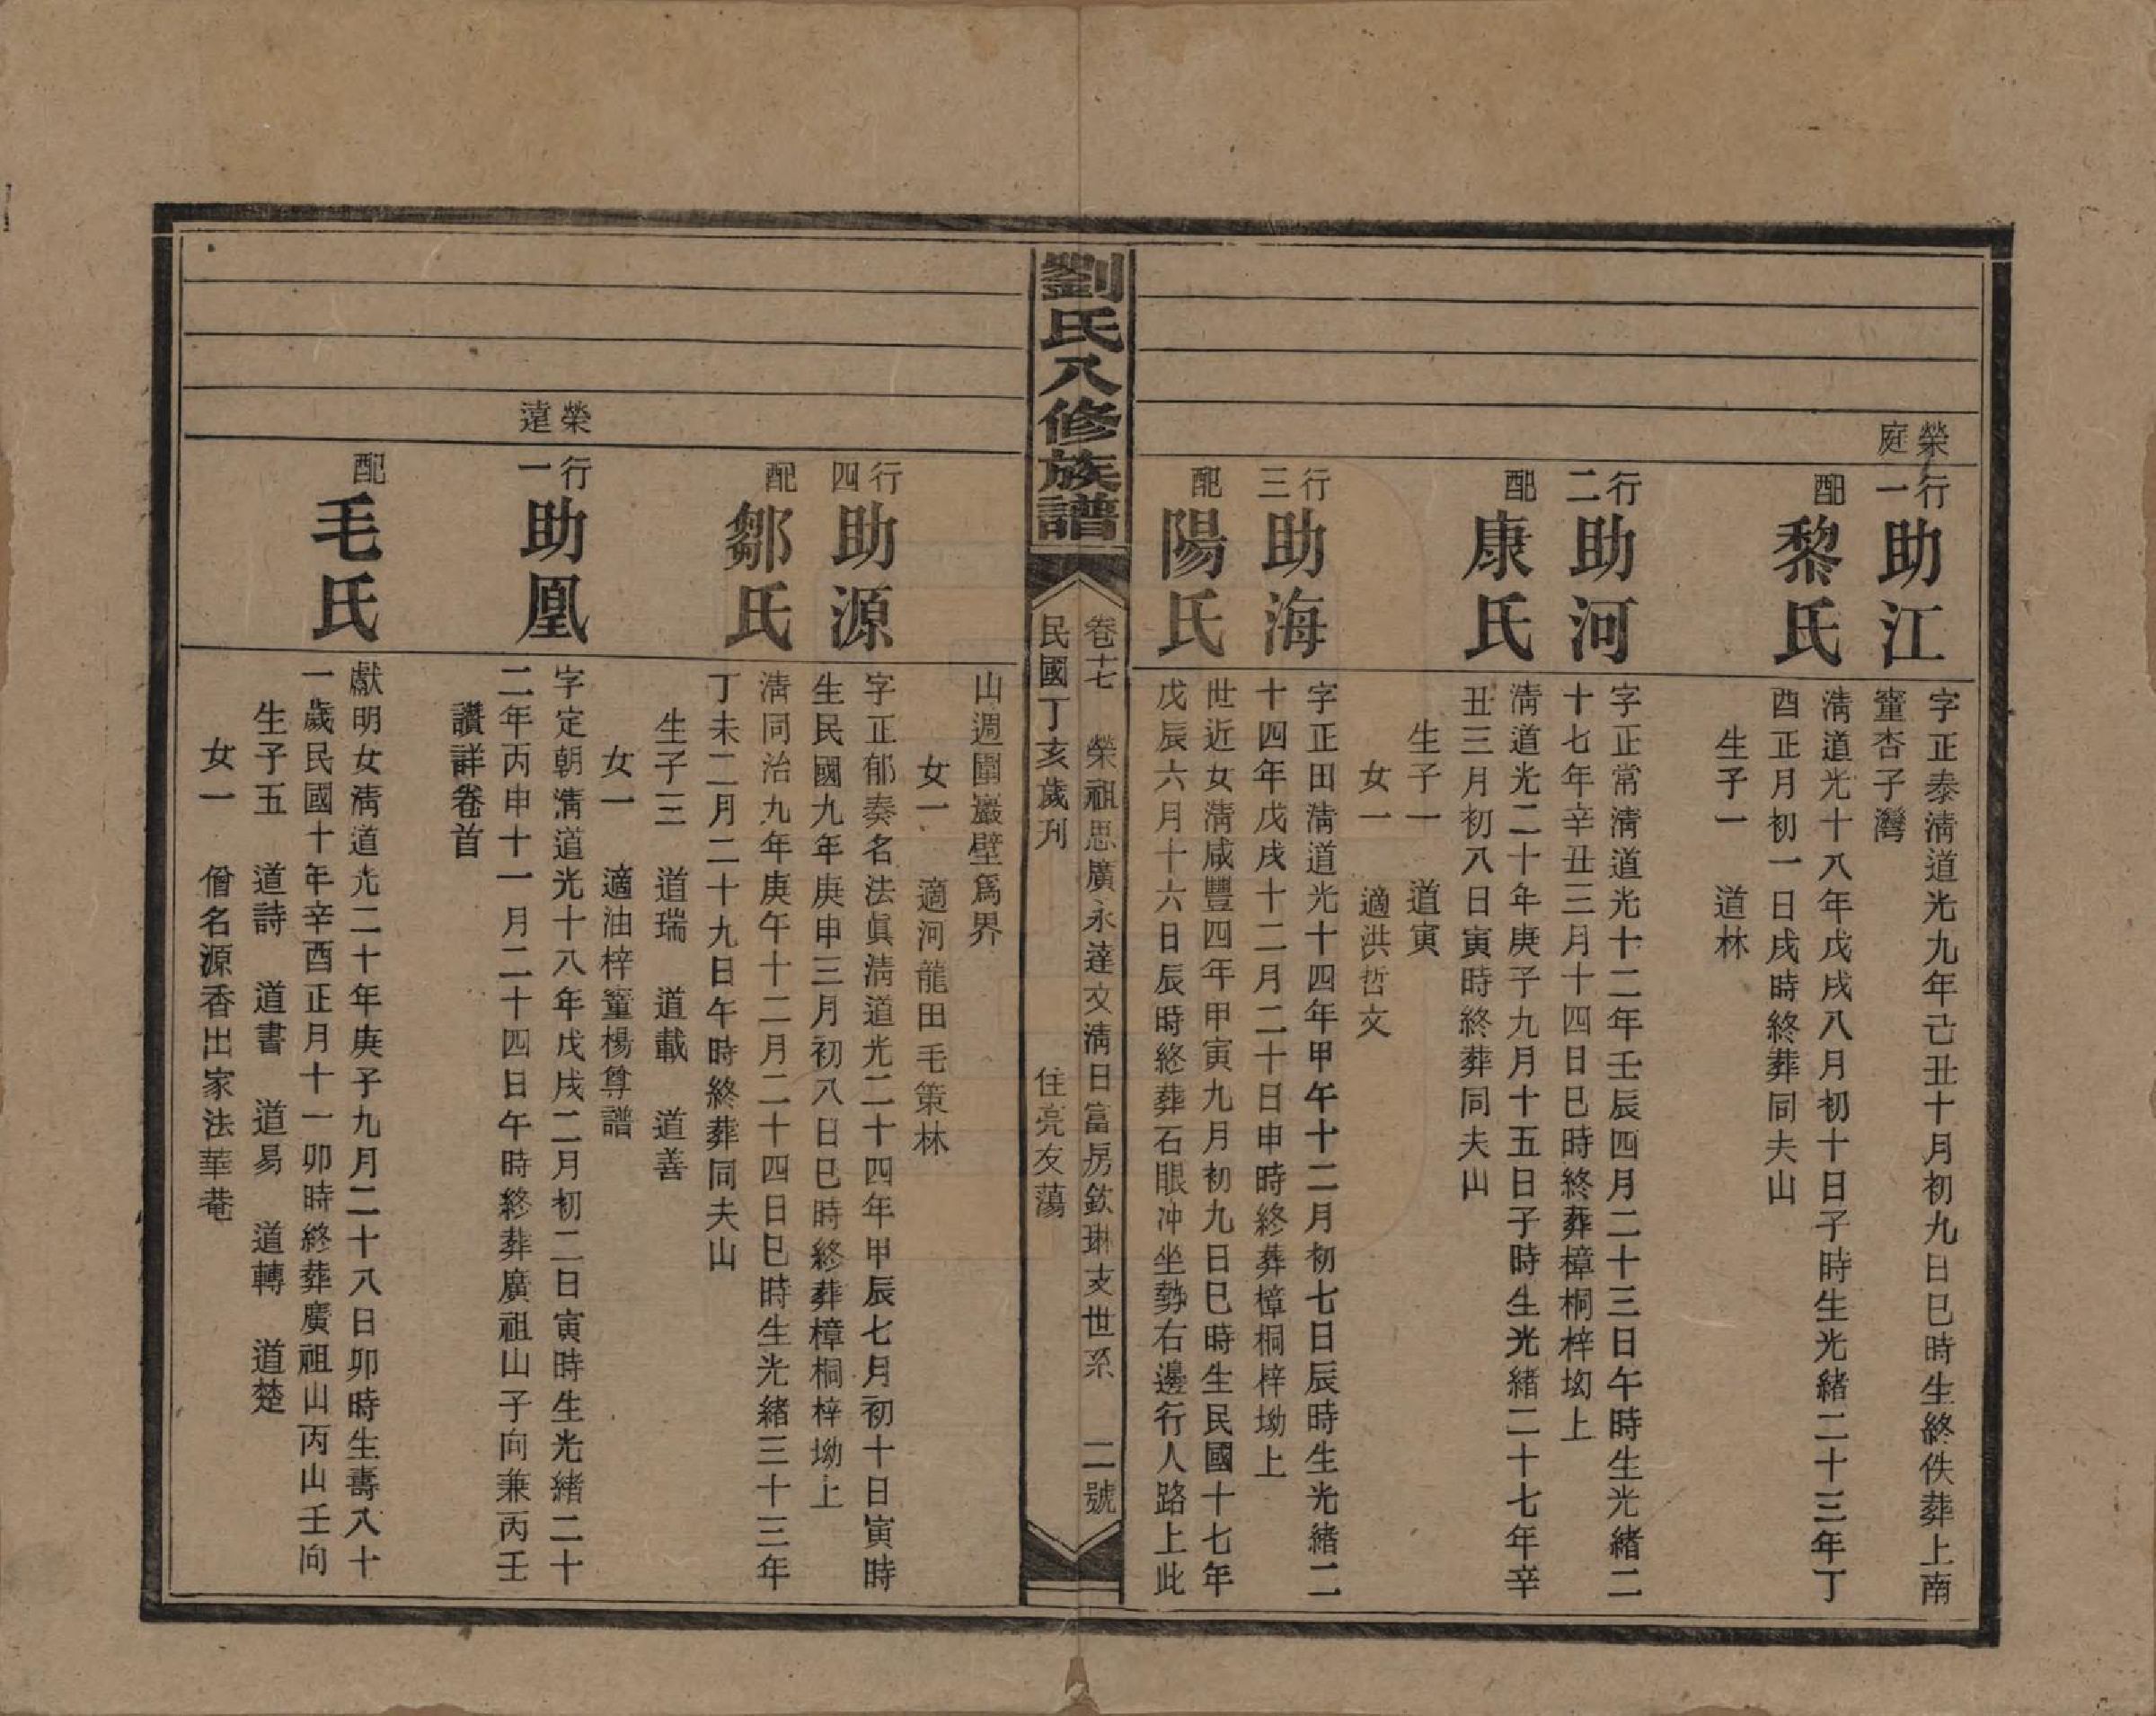 榮庭
行一 助江
字正泰淸道光九年己丑十月初九日巳時生終佚葬上南
窰杏子灣
配 黎氏
淸道光十八年戊戌八月初十日子時生光緒二十三年丁
酉正月初一日戌時終葬同夫山
生子一 道林
行二 助河
字正常淸道光十二年壬辰四月二十三日午時生光緒二
十七年辛丑三月十四日巳時終葬樟桐梓坳上
配 康氏
淸道光二十年庚子九月十五日子時生光緒二十七年辛
丑三月初八日寅時終葬同夫山
生子一 道寅
女一 適洪哲文
行三 助海
字正田淸道光十四年甲午十二月初七日辰時生光緒二
十四年戊戌十二月二十日申時終葬樟桐梓坳上
配 陽氏
世近女淸咸豐四年甲寅九月初九日巳時生民國十七年
戊辰六月十六日辰時終葬石眼冲坐勢右邊行人路上此
劉氏八修族譜
卷十七 榮祖思廣永達文淸日富房欽琳支世系 二號
民國丁亥歲刋 住亮友蕩
山週圍巖壁爲界
女一 適河龍田毛策林
行四 助源
字正郁奏名法眞淸道光二十四年甲辰七月初十日寅時
生民國九年庚申三月初八日巳時終葬樟桐梓坳上
配 鄒氏
淸同治九年庚午十二月二十四日巳時生光緒三十三年
丁未二月二十九日午時終葬同夫山
生子三 道瑞 道載 道善
女一 適油梓窰楊尊譜
榮遠
行一 助凰
字定朝淸道光十八年戊戌二月初二日寅時生光緒二十
二年丙申十一月二十四日午時終葬廣祖山子向兼丙壬
讚詳卷首
配 毛氏
獻明女淸道光二十年庚子九月二十八日卯時生壽八十
一歲民國十年辛酉正月十一卯時終葬廣祖山丙山壬向
生子五 道詩 道書 道易 道轉 道楚
女一 僧名源香出家法華菴